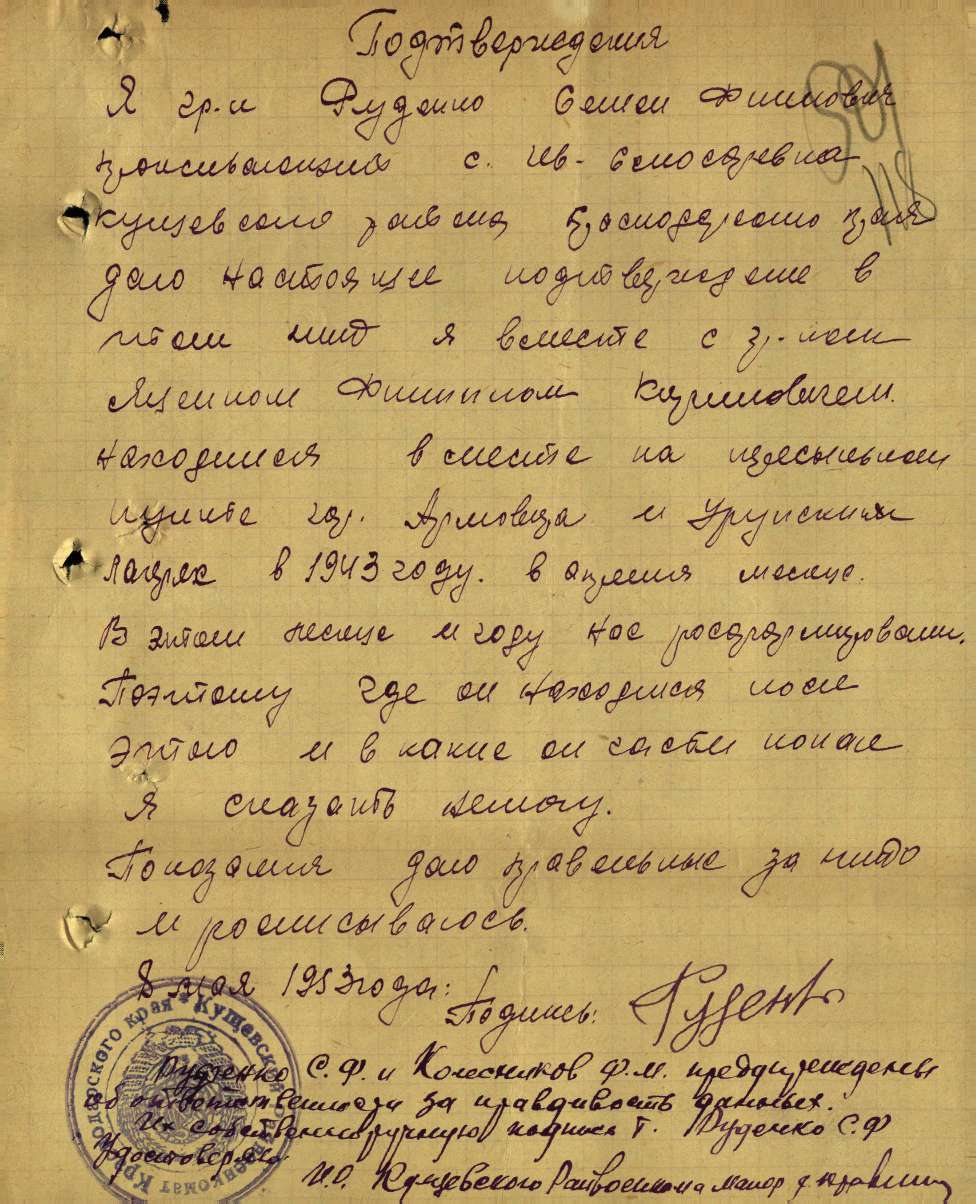 Подтверждения
Я гр-н Руденко Семен Филипович
с. Ив-
Кущевского района Краснодарского края
даю настояще подтверждение в
том што я вместе с гр-ном
Ященком Филипом Кириловичем.
Находился вместе на пересыльном
пункте гор. Армовира и Урупских
лагрях в 1943 году. в апреля месяце.
В этом месяце и году нас
Поэтому где он находился после
этого и в какие он части попал
я сказать немогу.
Показания даю правельные за што
и росписываюсь.
8 мая 1953 года:
Подпись: Руденко
Руденко С.Ф. и Колесников Ф.М. предупреждены
об ответственности за правдивость данных.
Их собственноручную подпись т. Руденко С.Ф
Удостоверяю
И.О. Кущевского Райвоенкома майор
301
118
Краснодарского края * Кущевск